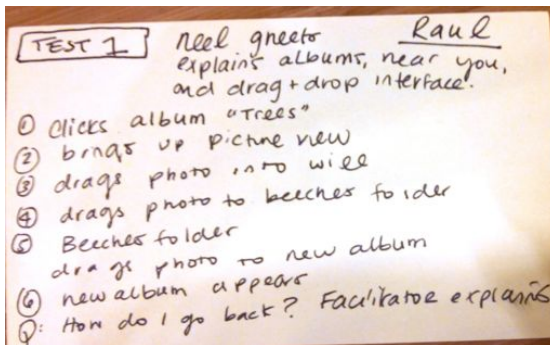 TEST 1 neel greets Raul
explains albums, near you,
and drag + drop interface.
① Clicks album "Trees"
② brings up picture view
③ drags photo into will
④ drags photo to beeches folder
⑤ Beeches folder
drags photo to new album
⑥ new album appears
Q: How do I go back? Facilitator explains